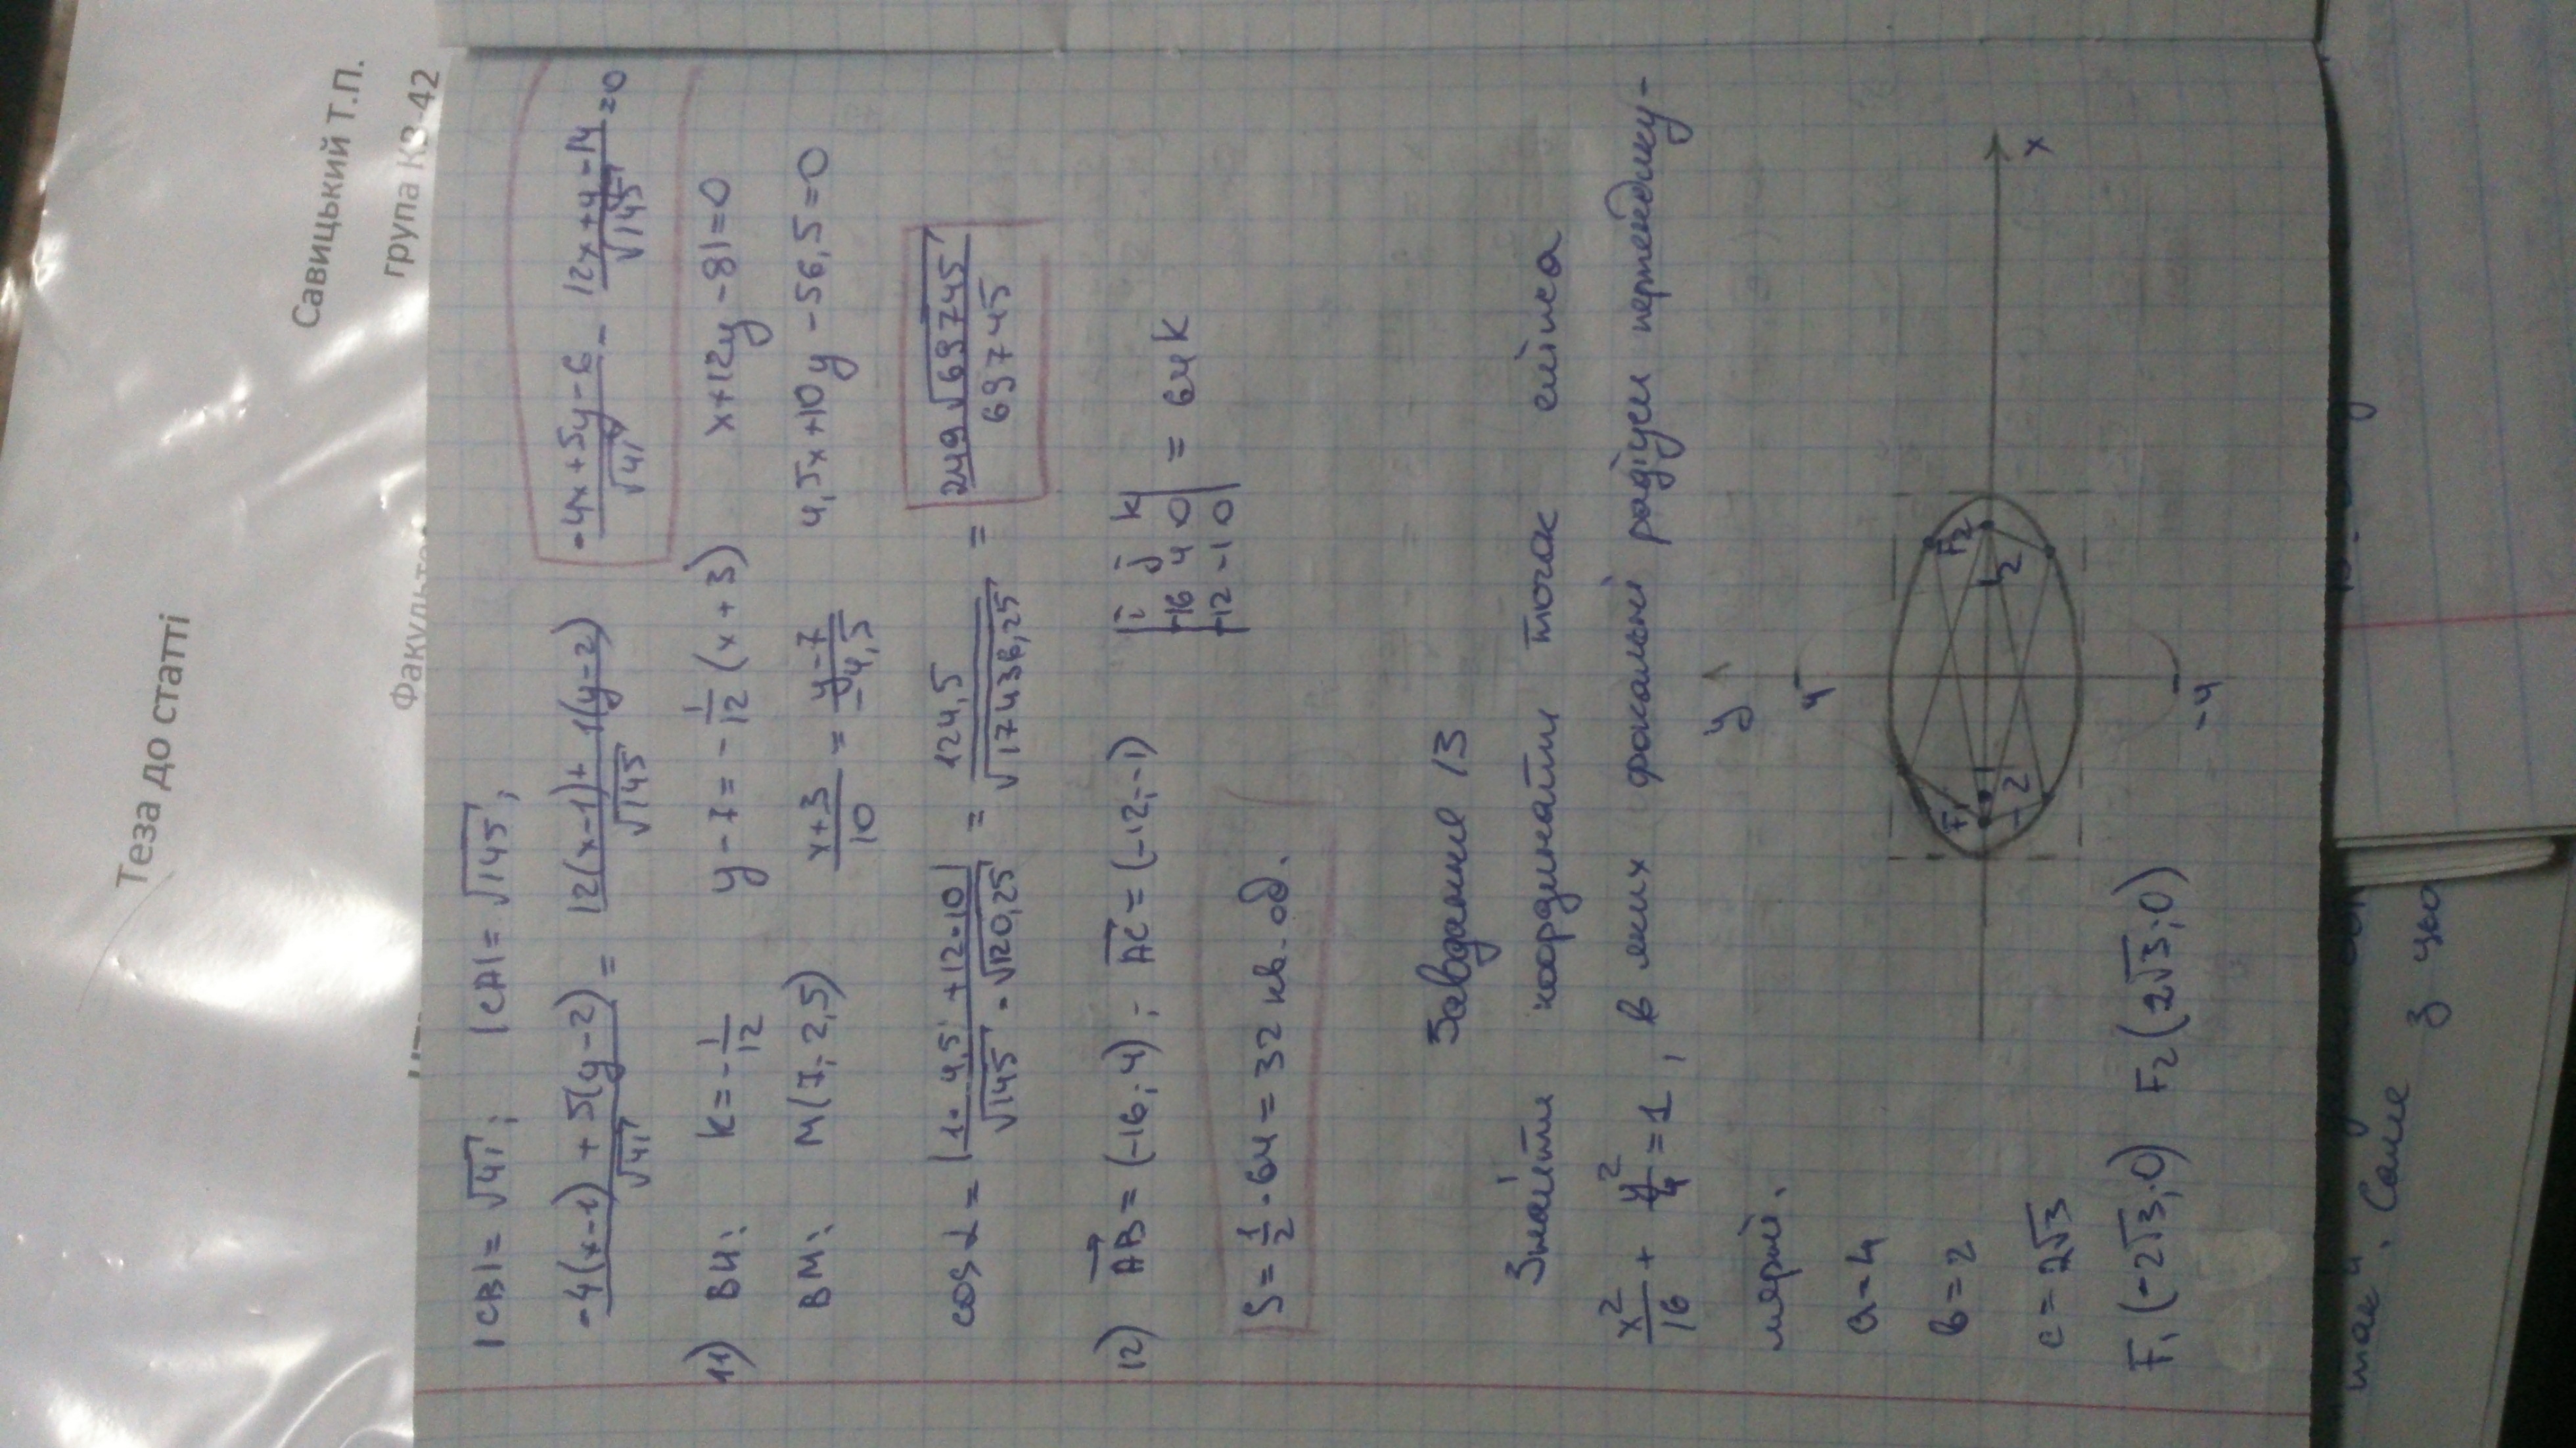 Теза до статті
Савицький Т.П.
група КЗ-42
Факульте
|CB| = √41; |CA| = √145;
(-4(x-1) + 5(y-2))/√41 = (12(x-1) + 1(y-2))/√145 (-4x+5y-6)/√41 - (12x+y-14)/√145 = 0
11) BH: k = -1/12 y-7 = -1/12 (x+3) x+12y-81=0
BM: M(7; 2,5) (x+3)/10 = (y-7)/-4,5 4,5x+10y-56,5=0
cos α = |1·4,5 + 12·10|/(√145 · √120,25) = 124,5/√17436,25 = 249√69745/69745
12) AB = (-16; 4); AC = (-12; -1) |i j k|
|-16 4 0| = 64k
|-12 -1 0|
S = 1/2 · 64 = 32 кв. од.
Завдання 13
Знайти координати точок еліпса
x²/16 + y²/4 = 1, в яких фокальні радіуси перпендику-
лярні.
y
4
a=4
b=2
F1 F2
-2 2
x
c = 2√3
F1 (-2√3; 0) F2 (2√3; 0)
-4
так". Саме
з